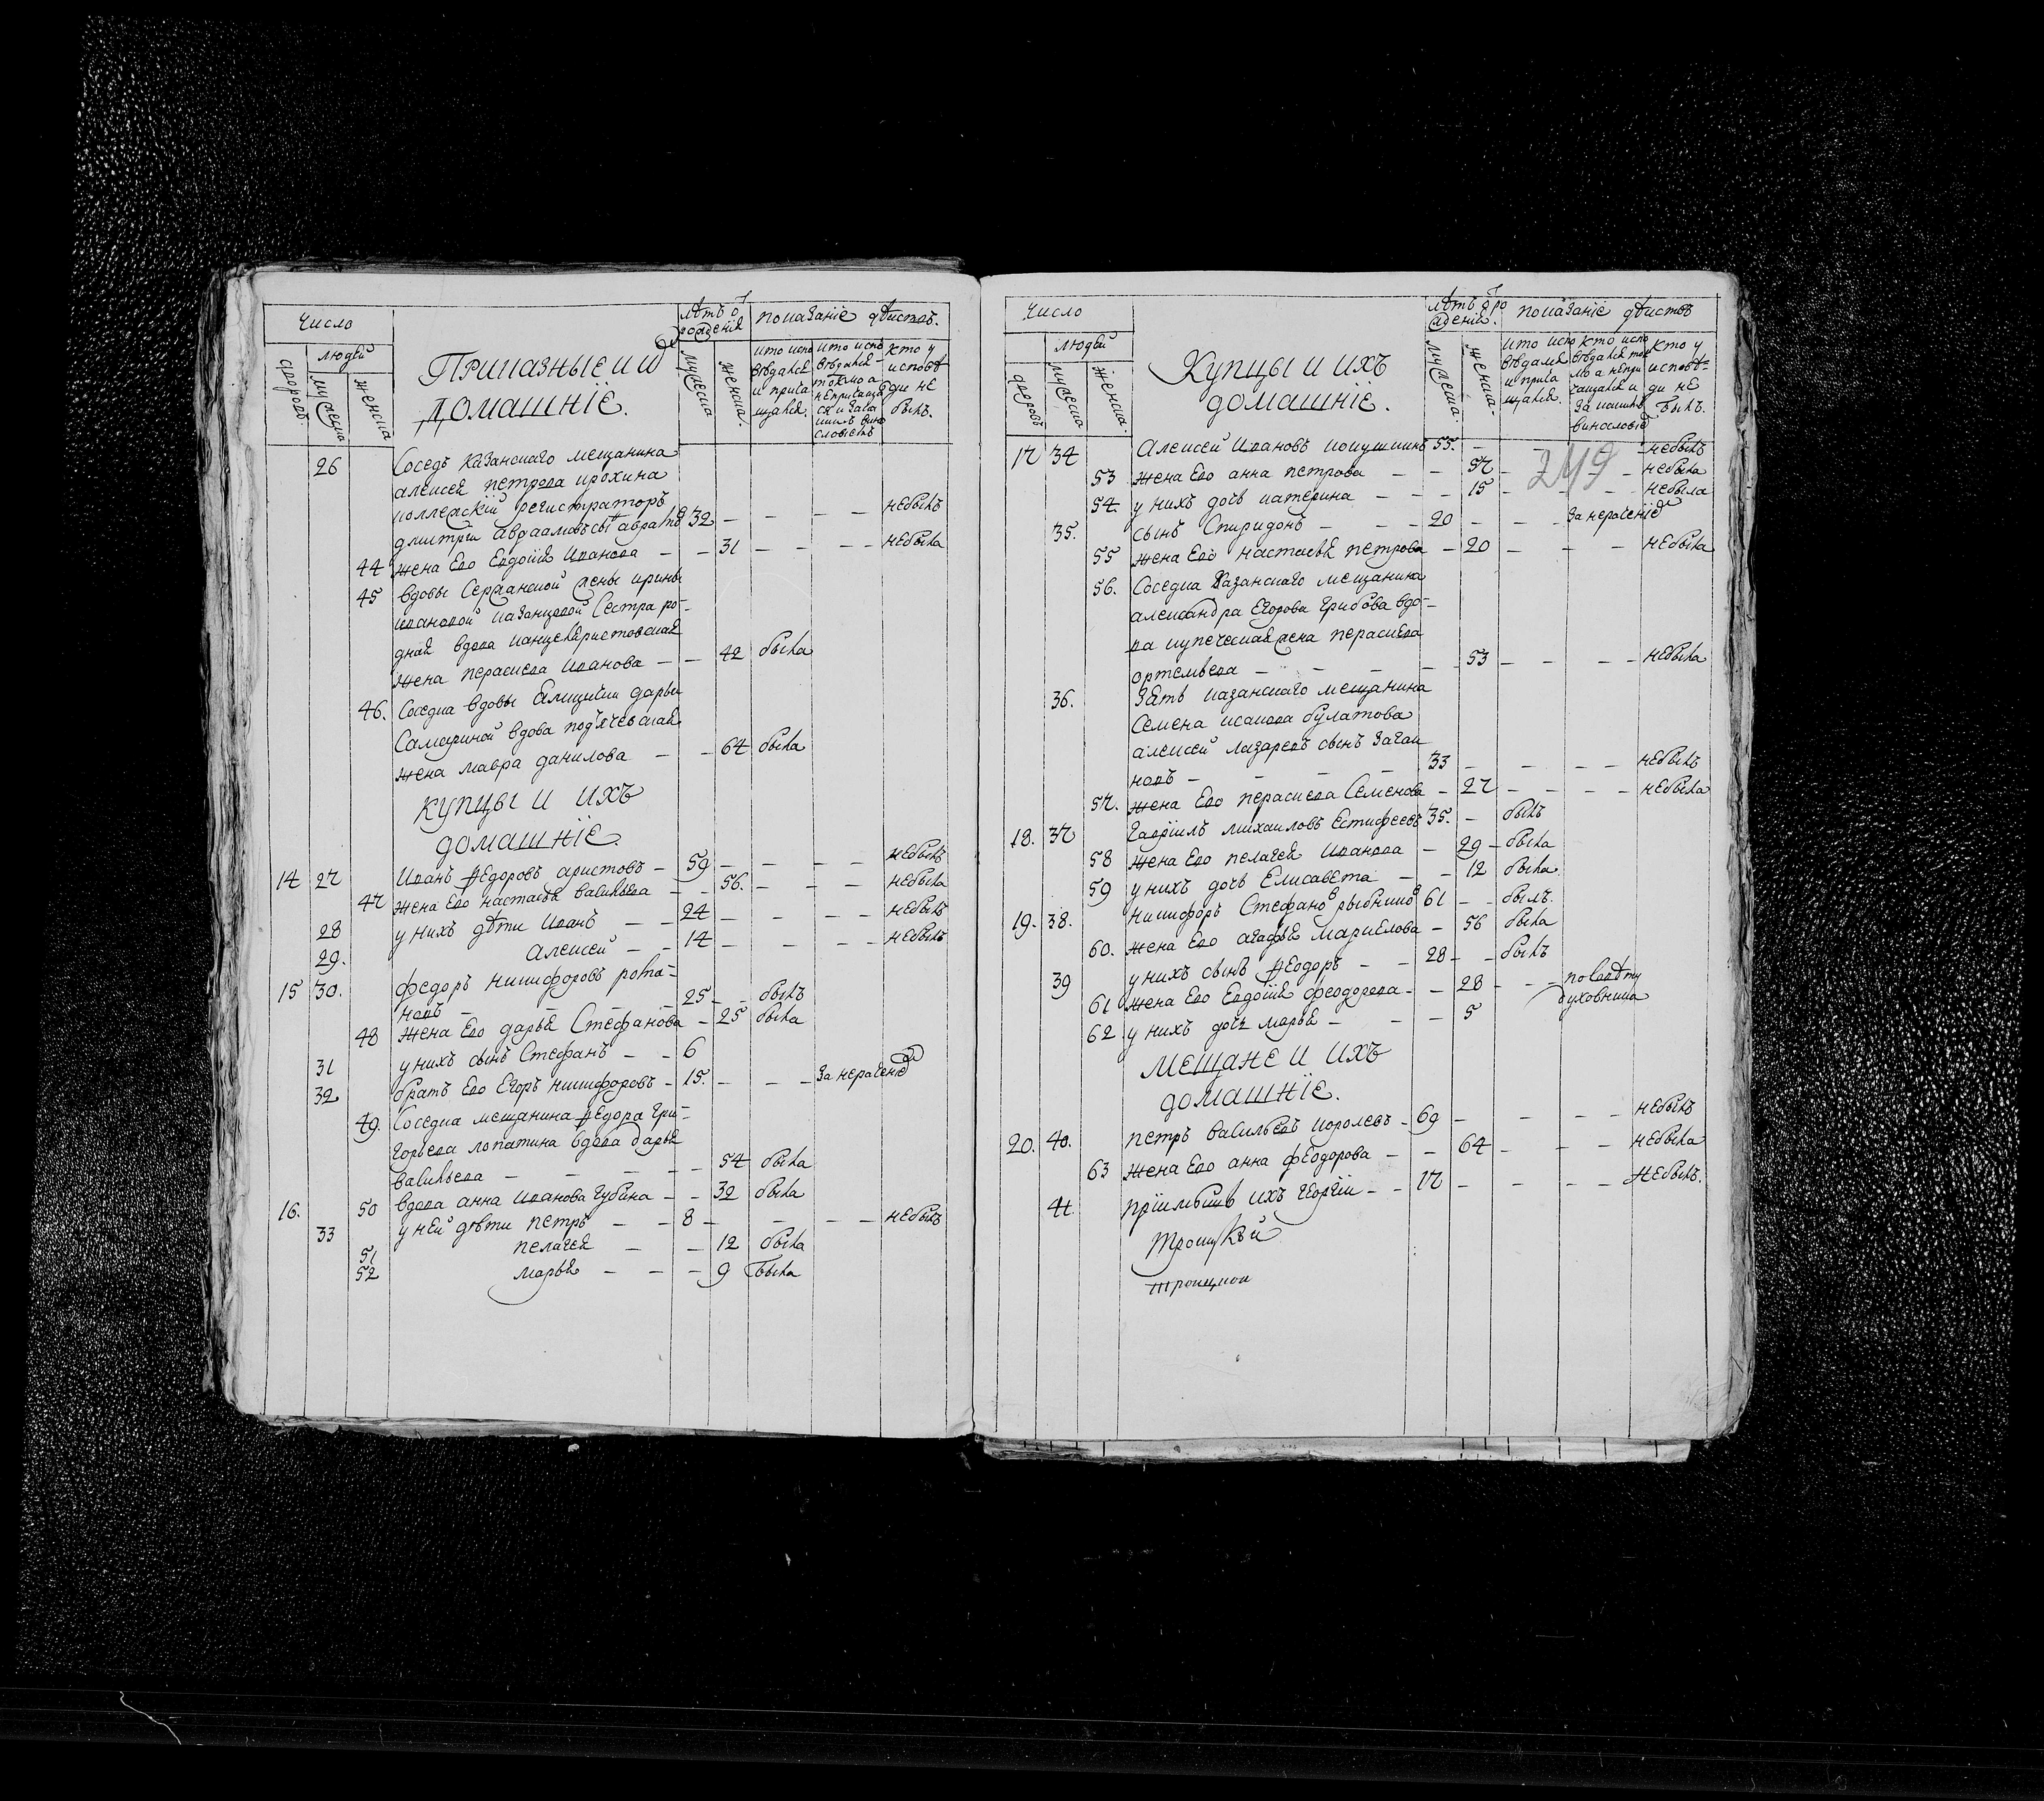 Число
людей
дворовъ
мужеска
женска
Приказные и их
домашнїе.
лѣтъ от
рождения
мужеска
женска.
показанїе дѣиствъ.
кто испо
вѣдался
и прича
щался.
кто испо
вѣдался
токмо а
не причаща
ся и зака
кимъ вино
словиемъ
кто у
исповѣ
ди не
былъ.
26 Соседъ казанскаго мещанина
алексея петрова ирохина
коллежский регистраторъ
дмитрей авраамовъ сы 32 — — — — небылъ
44 жена Его Евдокия Иванова — — 31 — — — — небыла
45 вдовы Сержанской жены ирины
ивановой казанцовой Сестра ро-
дная вдова канцеляристовская
жена параскева Иванова — — 42 была
46. Соседка вдовы дарьи
Самариной вдова подъяческая
жена мавра данилова — — 64 была
купцы и ихъ
домашнїе.
14 27 Иванъ Федоровъ аристовъ — 59 — — — — небылъ
47 жена Его настасья васильева — — 56. — — — небыла
28 у нихъ дѣти Иванъ — — 24 — — — — небылъ
29. Алексей — — 14 — — — — небылъ
15 30. федоръ никифоровъ рома-
новъ — — — — 25 — — былъ
48 жена Его дарья Стефанова — 25 была
31 у нихъ сынъ Стефанъ — — 6
32 братъ Его Егоръ никифоровъ — 15. — — — За нерачение
49. Соседка мещанина Федора Гри-
горьева лопатина вдова дарья
васильева — — — — — 54 была
16. 50 вдова анна Иванова Губина — — 32 была
33 у ней дѣти петръ — — 8 — — — — небылъ
51 пелагея — — 12 была
52 марья — — — 9 была
Число
людей
дворовъ
мужеска
женска.
Купцы и ихъ
домашнїе.
лѣтъ от ро
ждения.
мужеска.
женска.
показанїе дѣиствъ
кто испо
вѣдался
и прича
щался.
кто испо
вѣдался ток
мо а непри
чащался и
за какимъ
винословие
кто у
исповѣ-
ди не
былъ.
249
17 34 Алексей Ивановъ кокушкинъ 55. — — небылъ
53 жена Его анна петрова — — 57 — — — небыла
54. у нихъ дочь катерина — — — 15 — — — небыла
35. сынъ Спиридонъ — — — 20 — — — За нерачение
55 жена Его настасья петрова — 20 — — — небыла
56. Соседка Казанскаго мещанина
александра Егорова Грибова вдо-
ва купеческая жена параскева
ортемьева — — — — 53 — — — — небыла
36. Зять казанскаго мещанина
Семена исакова булатова
алексей лазаревъ сынъ
новъ — — — — 33 — — — — небылъ
57. жена Его параскева Семенова — 27 — — — — небыла
18. 37 Гаврїилъ михаиловъ Естифеевъ 35. — былъ
58 жена Его пелагея Иванова — 29 — была
59 у нихъ дочь Елисавета — — 12 была
19. 38. никифоръ Стефановъ рыбников 61 — — былъ.
60. жена Его агафья — 56 была
39 у нихъ сынъ Феодоръ — — 28 — — былъ
61 жена Его Евдокия феодорова — — 28 — — — по совѣту
духовника
62 у нихъ дочь марья — — — 5
мещане и ихъ
домашнїе.
20. 40. петръ васильевъ королевъ — 69 — — — — небылъ
63 жена Его анна феодорова — — 64 — — — небыла
41. прїимышъ ихъ георгїи — — 17 — — — — небылъ.
троицкой